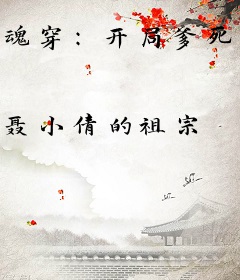 魂穿：开局爹死
聂小倩的祖宗